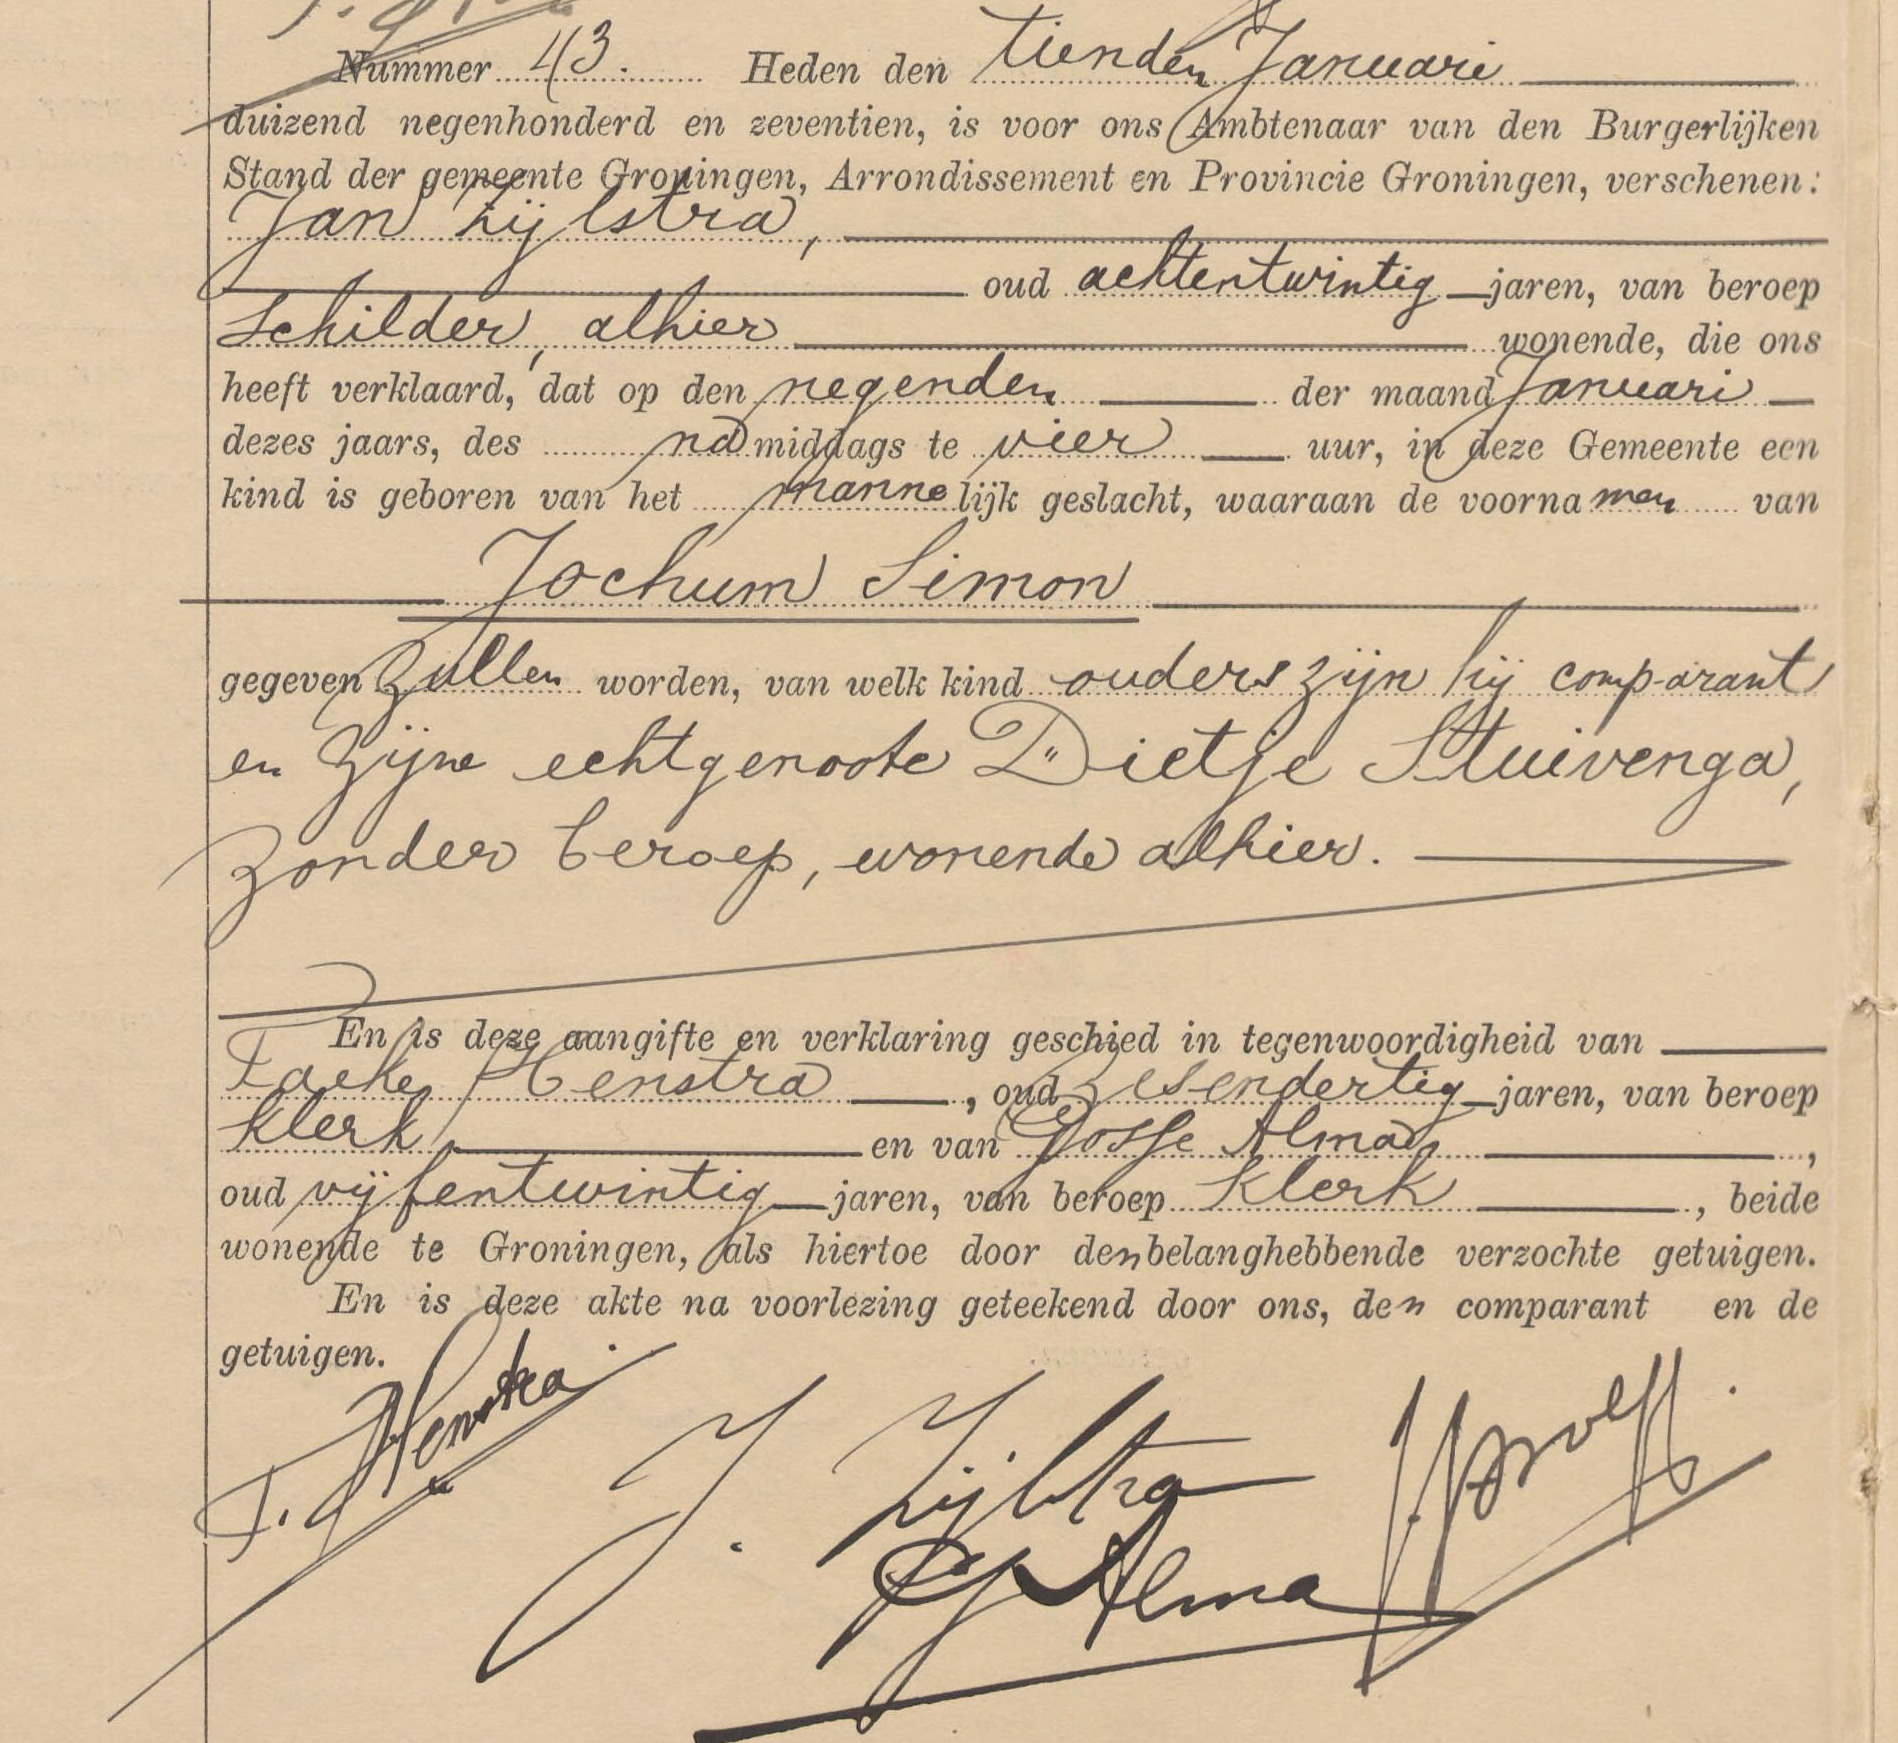 Nummer 43. Heden den tienden Januari
duizend negenhonderd en zeventien, is voor ons Ambtenaar van den Burgerlijken
Stand der gemeente Groningen, Arrondissement en Provincie Groningen, verschenen:
Jan Zijlstra,
oud achtentwintig jaren, van beroep
Schilder, alhier wonende, die ons
heeft verklaard, dat op den negenden der maand Januari
dezes jaars, des namiddags te vier uur, in deze Gemeente een
kind is geboren van het mannelijk geslacht, waaraan de voornamen van
Jochum Simon
gegeven zullen worden, van welk kind ouders zijn hij comparant
en zijne echtgenoote Dietje Stuivenga,
zonder beroep, wonende alhier.
En is deze aangifte en verklaring geschied in tegenwoordigheid van
Foeke Henstra, oud zesendertig jaren, van beroep
klerk en van Gosse Alma,
oud vijfentwintig jaren, van beroep klerk, beide
wonende te Groningen, als hiertoe door den belanghebbende verzochte getuigen.
En is deze akte na voorlezing geteekend door ons, den comparant en de
getuigen.
F. Henstra
J. Zijlstra
G Alma